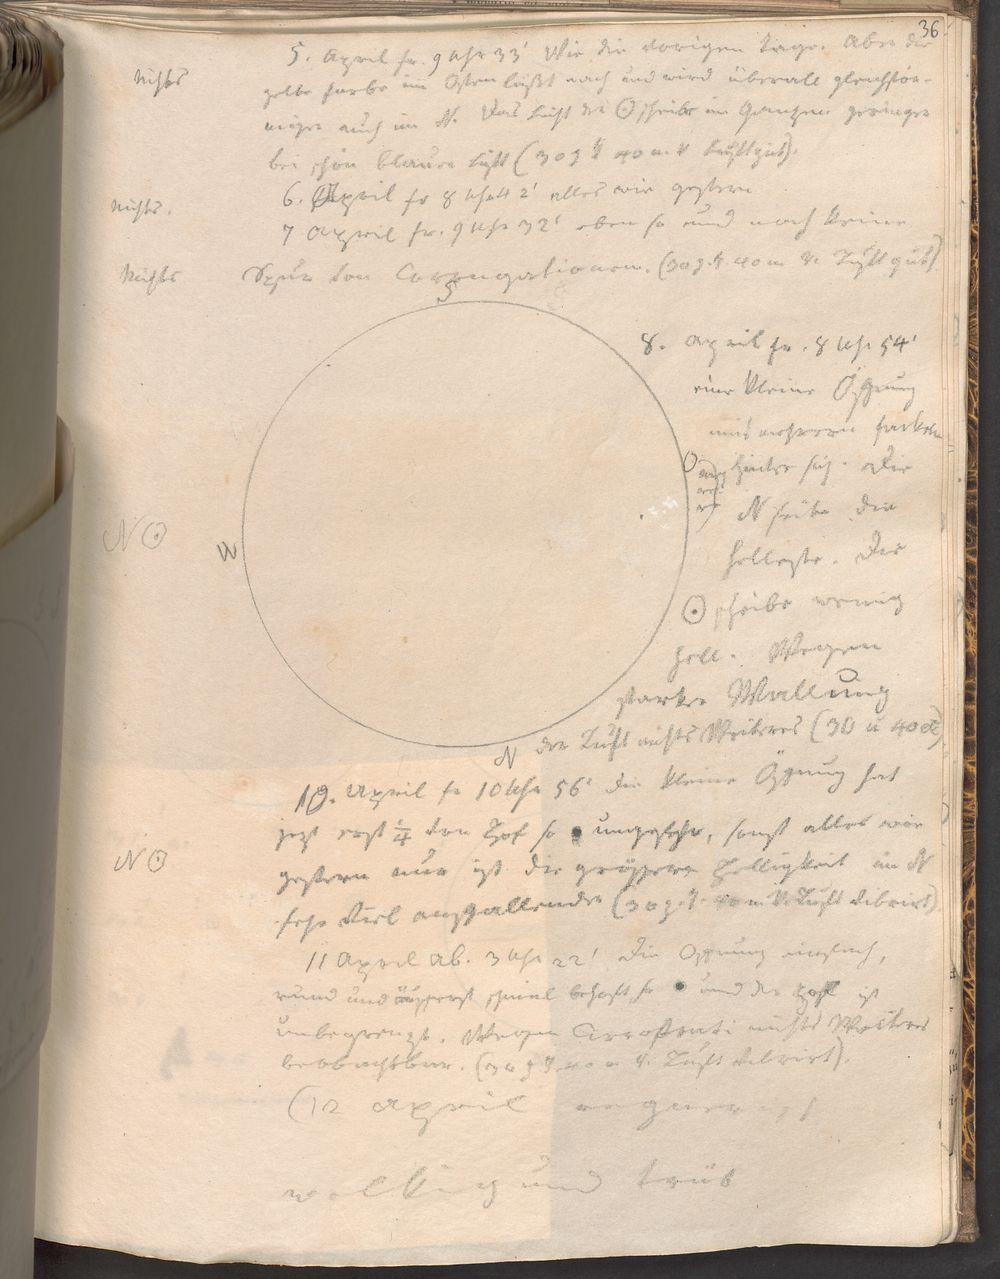 36
5. April fr. 9 Uhr 33' Wie die vorigen Tage. Aber die
Nichts
gelbe Farbe im Osten läßt nach und wird überall gleichför-
miger auch im N. Das Licht der ☉scheibe im Ganzen geringer
bei schön blauer Luft (30 z. 40 m. V. Luft gut).
6. April fr 8 Uhr 42' alles wie gestern
Nichts.
7 April fr. 9 Uhr 32' eben so und noch keine
Nichts
Spur von Corrugationen. (30 z. 40 m V. Luft gut)
S
8. April fr. 8 Uhr 54'
eine kleine Öffnung
mit mehreren Fackeln
O
hinter sich. Die
N Seite die
N ☉
W
hellere. Die
☉scheibe wenig
hell. Wegen
starker Wallung
N
der Luft nichts Weiteres (30 u 40
10. April fr 10 Uhr 56' die kleine Öffnung hat
jetzt erst den Hof so ungefähr, sonst alles wie
N ☉
gestern nur ist die grössere Helligkeit im N
sehr viel auffallender (30 z. 40 m V. Luft vibrirt)
11 April Ab. 3 Uhr 22' die Öffnung einfach,
rund und äusserst schmal behoft so und der Hof ist
unbegrenzt. Wegen Cirrostrati nichts Weiteres
beobachtbar. (30 z 40 m V. Luft vibrirt).
(12 April
wolkig und trüb